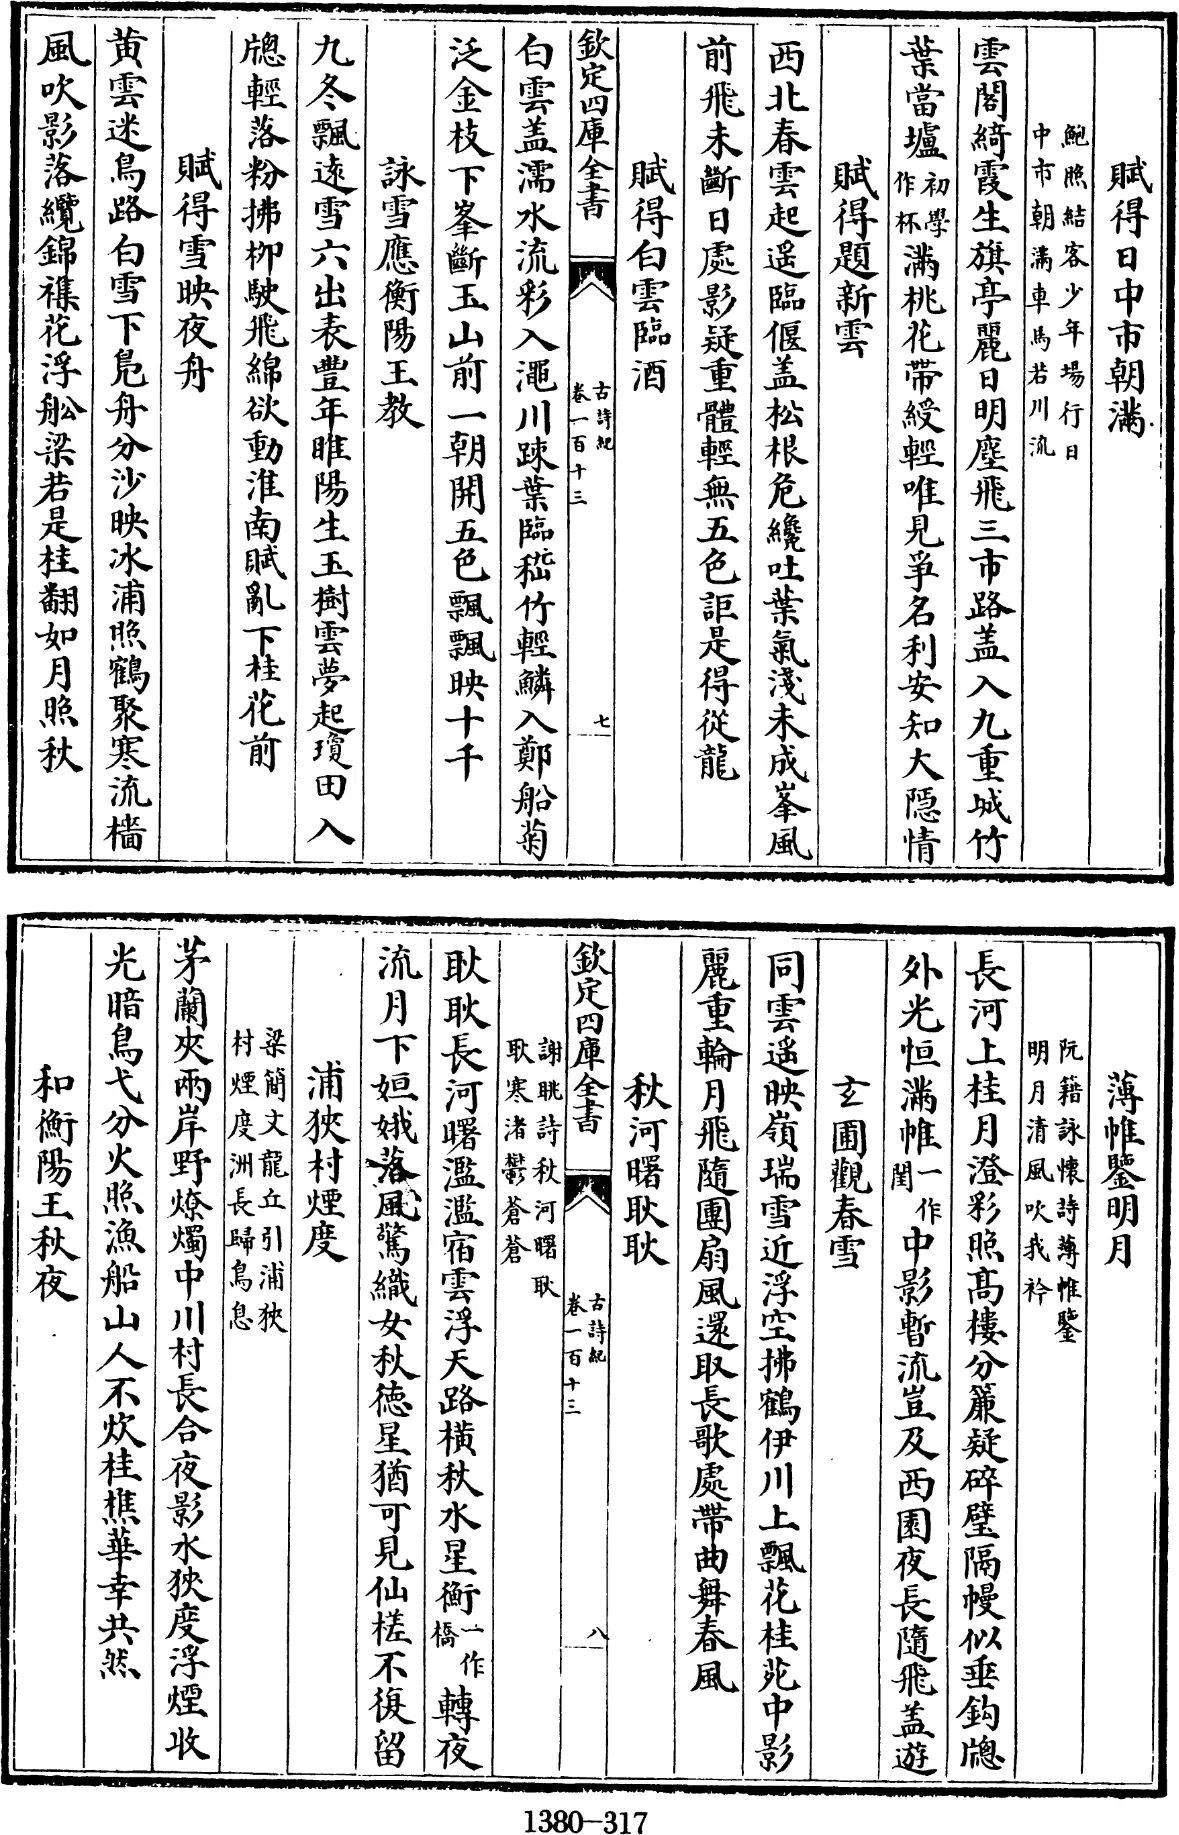 賦得日中市朝滿
鮑照結客少年場行日
中市朝滿車馬若川流
雲閣綺霞生旗亭麗日明塵飛三市路盖入九重城竹
葉當壚初學作杯滿桃花帶綬輕唯見爭名利安知大隱情
賦得題新雲
西北春雲起遥臨偃盖松根危纔吐葉氣淺未成峯風
前飛未斷日處影疑重體輕無五色詎是得從龍
賦得白雲臨酒
欽定四庫全書
古詩紀
卷一百十三
七
白雲盖濡水流彩入澠川踈葉臨嵇竹輕鱗入鄭船菊
泛金枝下峯斷玉山前一朝開五色飄飄映十千
詠雪應衡陽王教
九冬飄逺雪六出表豐年睢陽生玉樹雲夢起瓊田入
牎輕落粉拂柳駛飛綿欲動淮南賦亂下桂花前
賦得雪映夜舟
黄雲迷鳥路白雪下鳧舟分沙映冰浦照鶴聚寒流檣
風吹影落纜錦襍花浮舩梁若是桂翻如月照秋
薄帷鑒明月
阮籍詠懷詩薄帷鑒
明月清風吹我衿
長河上桂月澄彩照髙樓分簾疑碎璧隔幔似垂鈎牎
外光恒滿帷一作閨中影暫流豈及西園夜長隨飛盖遊
玄圃觀春雪
同雲遥映嶺瑞雪近浮空拂鶴伊川上飄花桂苑中影
麗重輪月飛隨團扇風還取長歌處帶曲舞春風
秋河曙耿耿
欽定四庫全書
古詩紀
卷一百十三
八
謝眺詩秋河曙耿
耿寒渚鬱蒼蒼
耿耿長河曙濫濫宿雲浮天路橫秋水星衡一作橋轉夜
流月下姮娥落風驚織女秋徳星猶可見仙槎不復留
浦狹村煙度
梁簡文龍丘引浦狹
村煙度洲長歸鳥息
茅蘭夾兩岸野燎燭中川村長合夜影水狹度浮煙收
光暗鳥弋分火照漁船山人不炊桂樵華幸共然
和衡陽王秋夜
1380-317